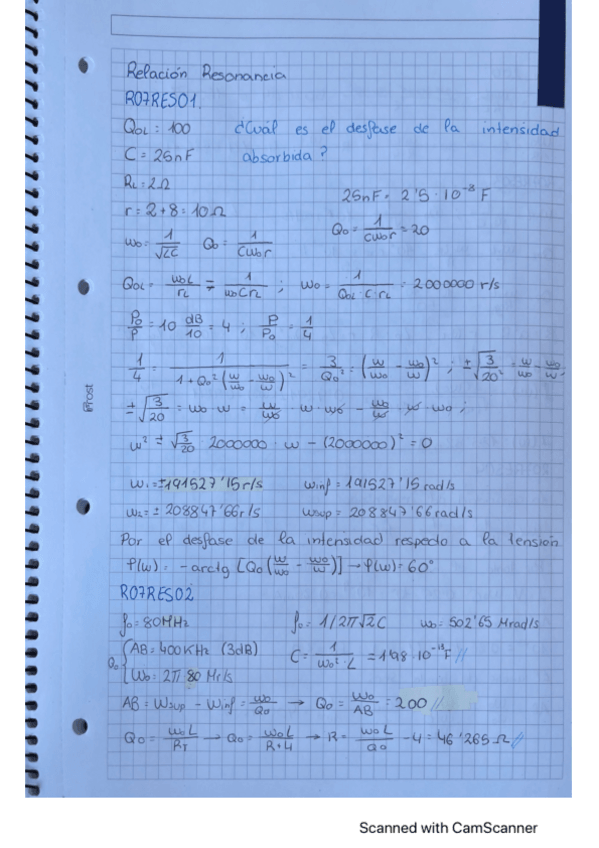 Relación Resonancia
R07RES01.
QoL = 100 ¿Cuál es el desfase de la intensidad
C = 25nF absorbida?
RL = 2Ω
25nF = 2'5 · 10⁻⁸ F
r = 2+8 = 10Ω
ω₀ = 1/√LC Q₀ = 1/Cω₀r Q₀ = 1/Cω₀r = 20
QoL = ω₀L/rL = 1/ω₀CrL ; ω₀ = 1/QoL·C·rL = 2000000 r/s
P₀/P = 10 dB/10 = 4 ; P/P₀ = 1/4
1/4 = 1/1+Q₀²(ω/ω₀ - ω₀/ω)² = 3/Q₀² = (ω/ω₀ - ω₀/ω)² ; ±√3/20² = ω/ω₀ - ω₀/ω
±√3/20 = ω₀·ω = ω/ω₀ · ω·ω₀ - ω₀/ω · ω·ω₀ ;
ω² ± √3/20 · 2000000 · ω - (2000000)² = 0
ω₁ = ±191527'15 r/s ωinf = 191527'15 rad/s
ω₂ = ± 208847'66 r/s ωsup = 208847'66 rad/s
Por el desfase de la intensidad respecto a la tension
φ(ω) = -arctg [Q₀(ω/ω₀ - ω₀/ω)] → φ(ω) = 60°
R07RES02
f₀ = 80MHz f₀ = 1/2π√LC ω₀ = 502'65 Mrad/s
Q₀ { AB = 400KHz (3dB) C = 1/ω₀²·L = 1'98 · 10⁻¹³F //
ω₀ = 2π 80 Mr/s
AB = ωsup - ωinf = ω₀/Q₀ → Q₀ = ω₀/AB = 200 //
Q₀ = ω₀L/RT → Q₀ = ω₀L/R+4 → R = ω₀L/Q₀ - 4 = 46'265 Ω //
iFrost
Scanned with CamScanner